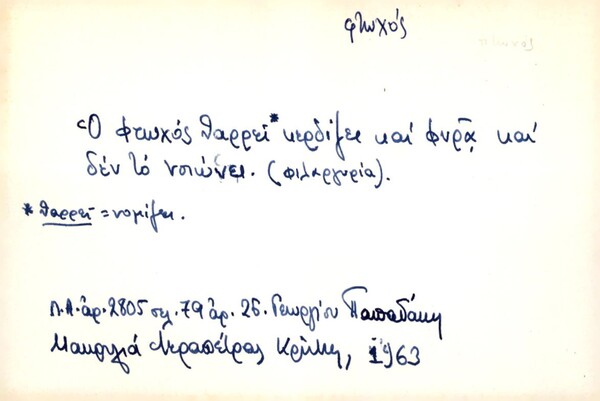 φτωχός
Ὁ φτωχός θαρρεῖ* κερδίζει καί φυρᾷ καί
δέν τό νοιώνει. (φιλαργυρία).
* θαρρεῖ = νομίζει.
Λ.Α. ἀρ. 2805 σελ. 79 ἀρ. 26. Γεωργίου Παπαδάκη
Ἱεραπέτρας Κρήτης, 1963